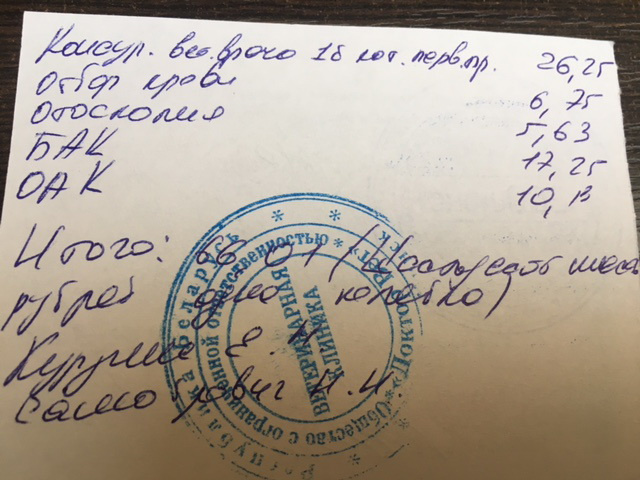 Консул. вет.врача 1б кат. перв.пр. 26,25
Отбор крови 6,75
Отоскопия 5,63
БАК 17,25
ОАК 10,13
Итого: 66-01 (Шестьдесят шесть
рублей одна копейка)
Е. Н.
Самойлович Н.И
Республика Беларусь
Общество с ограниченной ответственностью * "Доктор
ВЕТЕРИНАРНАЯ
КЛИНИКА